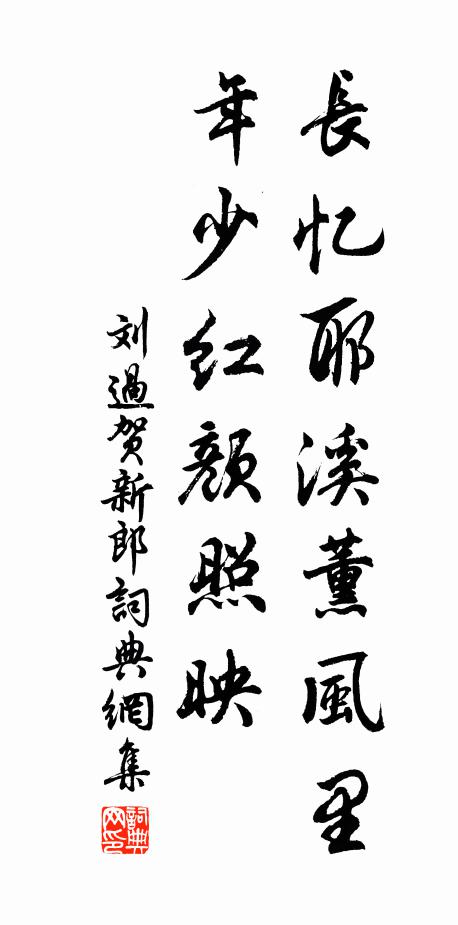 長忆耶溪薰風里
年少红颜照映
刘過贺新郎詞典網集
詞典网印